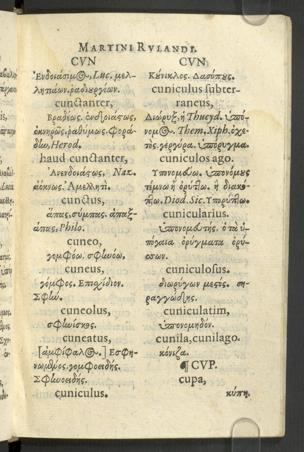 MARTINI RVLANDI.
CVN
Ἐνδοιάσιμος, Luc. μελ-
ληπάων. ῥᾳδιεργέων.
cunctanter,
Βραδέως. ἐνδοιατως,
ὀκνηρῶς. ῥαθύμως. Φορά-
δίω, Herod.
haud cunctanter,
Ἀνενδοιάςως, Naz.
ἀόκνως. Ἀμελλητί.
cunctus,
ἅπας. σύμπας. ἁπαξ-
άπας. Philo.
cuneo,
γομφόω. σφηνόω.
cuneus,
γόμφος. Ἐπιχίδιον.
Σφήν.
cuneolus,
σφηνίσκος.
cuneatus,
Ἐσφη-
νωμένος. γομφοειδής.
Σφηνοειδής.
cuniculus.
CVN.
Κύνικλος. Δασύπης.
cuniculus subter-
raneus,
Διώρυξ, ἡ Thucyd. ὑπό-
νομος. Them. Xiph. ὀχε-
τός. γέργυρα. ὑπόρυγμα.
cuniculos ago.
Ὑπονομεύω. ὑπονόμους
τέμνω ἢ ὀρύττω. ἢ διακό-
πτω. Diod. Sic. Ὑπορύττω.
cunicularius.
ὑπονομευτής. ὁ τὰ ὑ-
πόγαια ὀρύγματα ὀρύ-
σσων.
cuniculosus.
διωρύγων μεςός. ση-
ραγγώδης.
cuniculatim,
ὑπονομηδόν.
cunila, cunilago.
κόνιζα.
¶ CVP.
cupa,
κύπη.